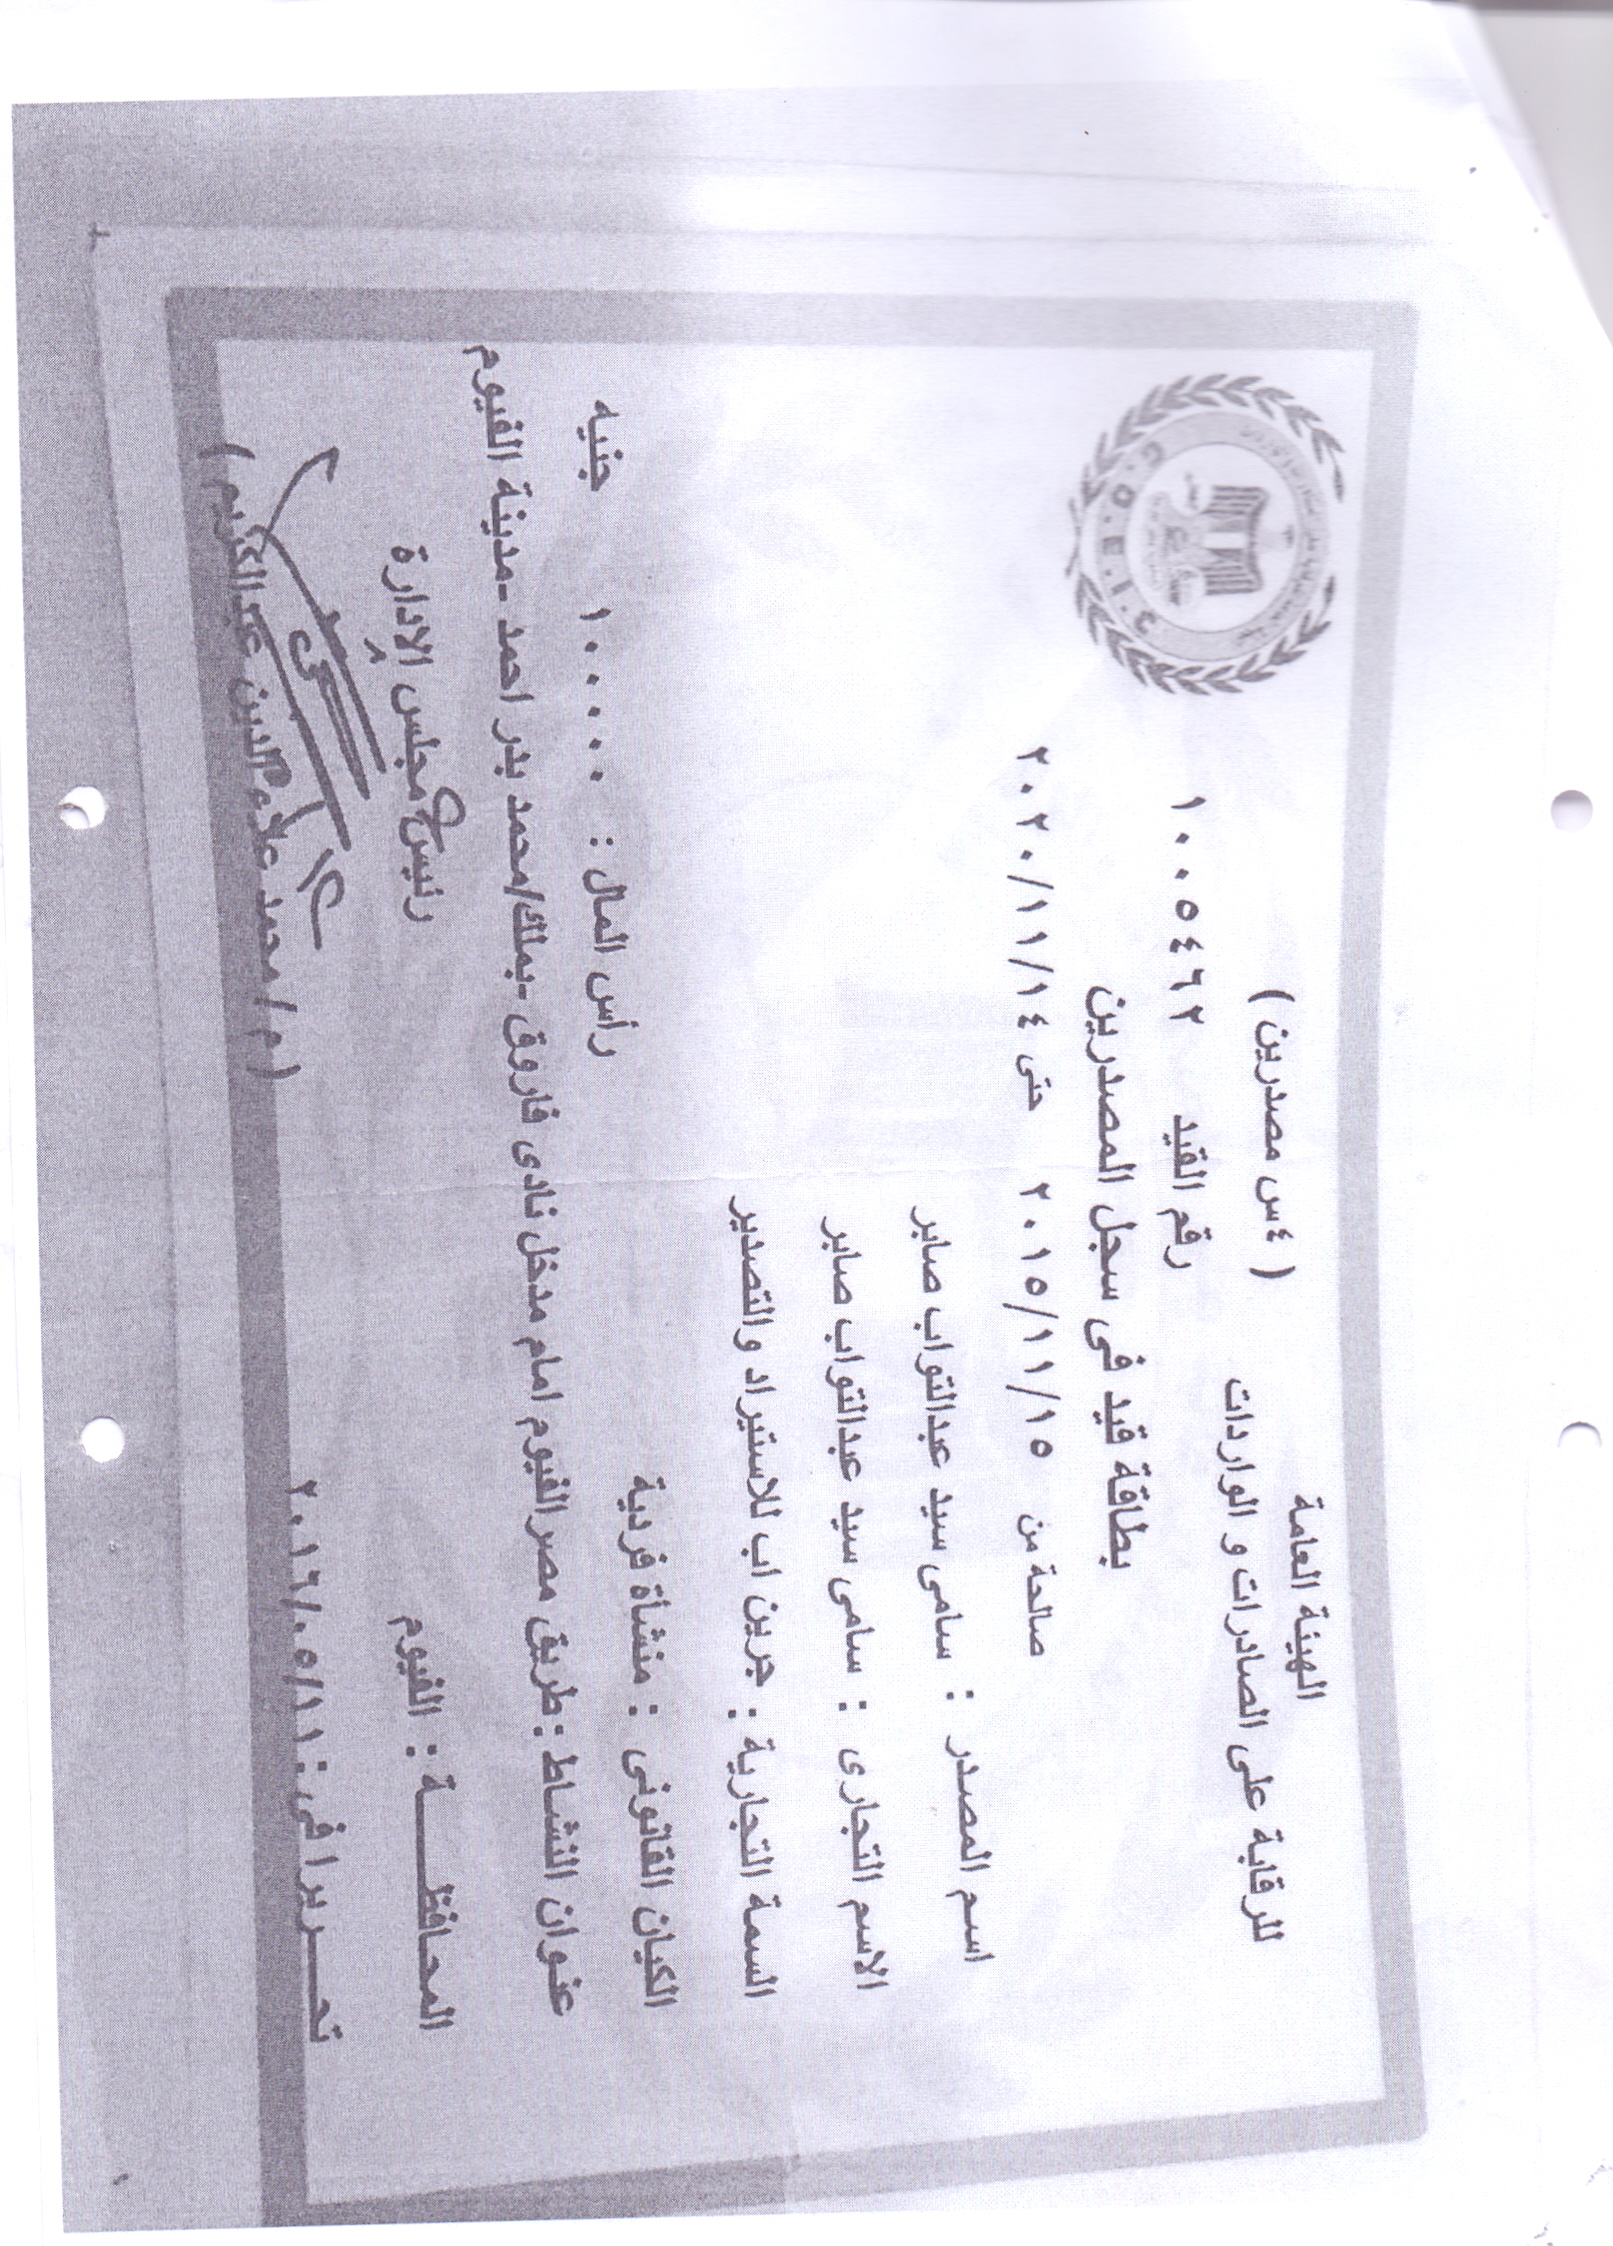 الهيئة العامة
للرقابة على الصادرات و الواردات
( ٤س مصدرين )
G.O.E.I.C
رقم القيد ١٠٠٥٤٦٢
بطاقة قيد فى سجل المصدرين
صالحة من ٢٠١٥/١١/١٥ حتى ٢٠٢٠/١١/١٤
اسم المصدر : سامى سيد عبدالتواب صابر
الاسم التجارى : سامى سيد عبدالتواب صابر
السمة التجارية : جرين اب للاستيراد والتصدير
الكيان القانونى : منشأة فردية رأس المال : ١٠٠٠٠ جنيه
عنوان النشاط : طريق مصر الفيوم امام مدخل نادى فاروق -بملك/محمد بدر احمد -مدينة الفيوم
المحافظـــــة : الفيوم
رئيس مجلس الادارة
تحــــريرا فى : ٢٠١٦/٠٥/١١
( م / محمد علاء الدين عبد الكريم )